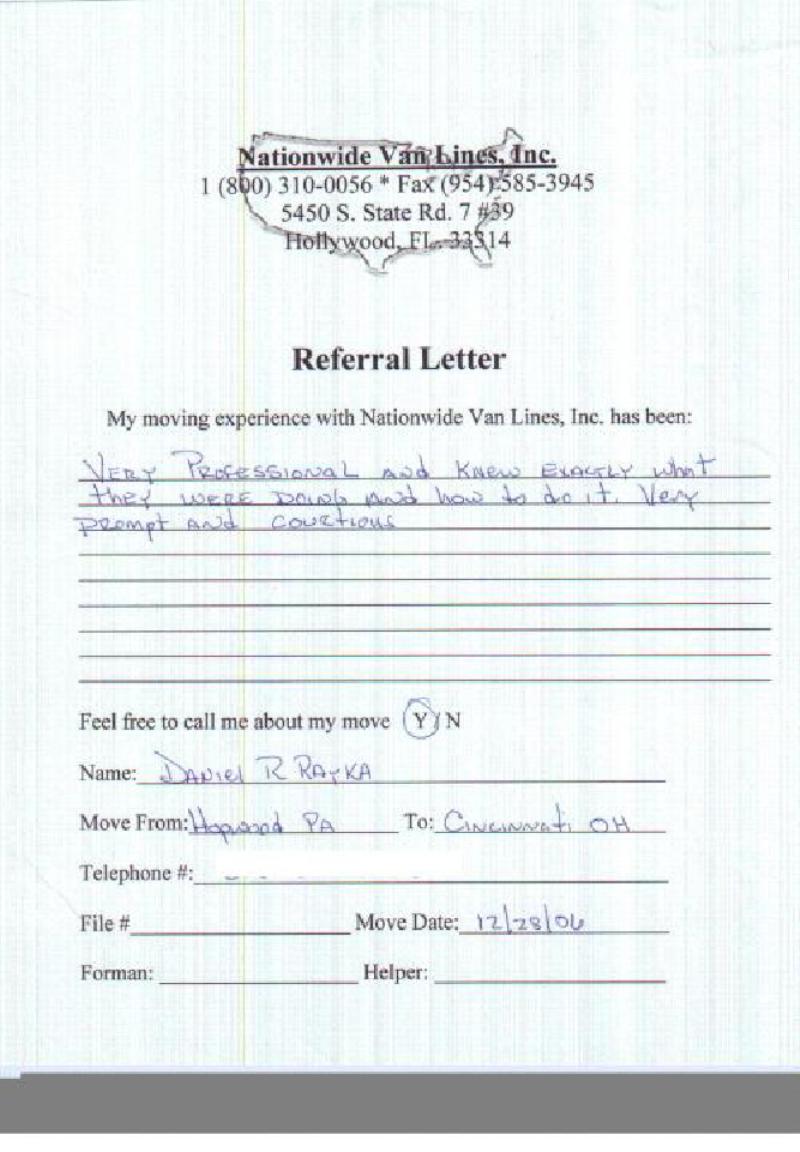 Nationwide Van Lines, Inc.
1 (800) 310-0056 * Fax (954) 585-3945
5450 S. State Rd. 7 #39
Hollywood, FL. 33314
Referral Letter
My moving experience with Nationwide Van Lines, Inc. has been:
VERY PROFESSIONAL AND KNEW EXACTLY what
they WERE DOING AND how to do it. Very
PROMPT AND COURTIOUS
Feel free to call me about my move Y / N
Name: DANIEL R RAYKA
Move From: Hopwood PA To: CINCINNATI OH
Telephone #:
File # Move Date: 12/28/06
Forman: Helper: